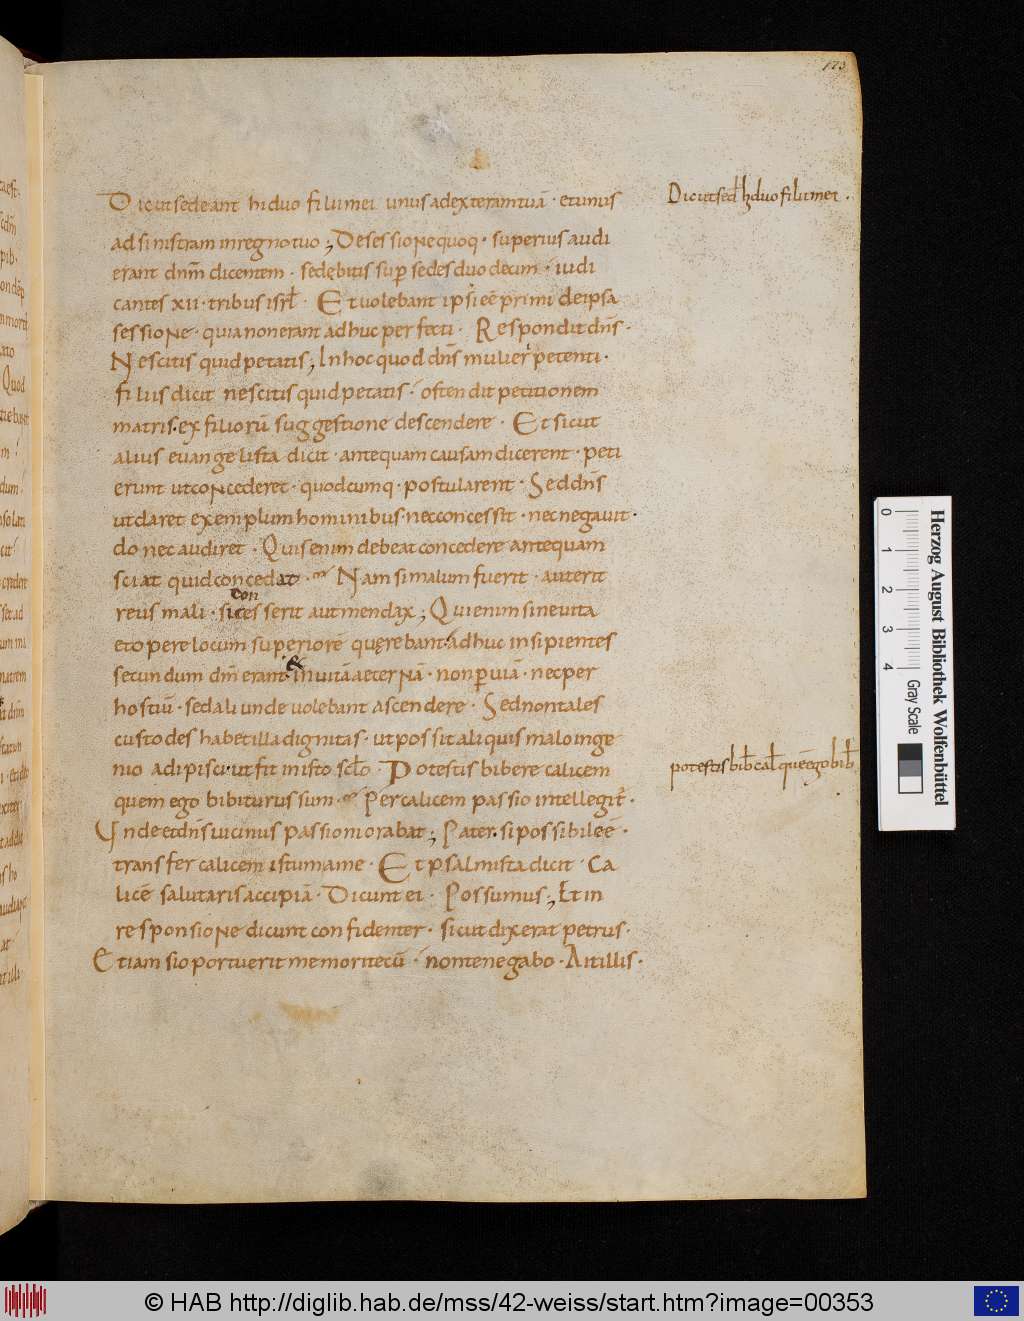 173
Dic ut sedeant hi duo filii mei unus ad exteram tuā · et unus
Dic ut sed h duo filii mei .
ad sinistram in regno tuo ; De sessione quoq · superius audi
erant dnm̄ dicentem · sedębitis sup̄ sedes duodecim · iudi
cantes xii · tribus isrł · Et uolebant ipsi eē primi de ipsa
sessione · quia non erant adhuc perfecti · Respondit dn̄s ·
Nescitis quid petatis ; In hoc quod dn̄s mulieri petenti ·
filius dicit nescitis quid petatis · ostendit petitionem
matris · ex filiorū suggestione descendere · Et sicut
alius euangelista dicit · antequam causam dicerent · peti
erunt ut concederet · quodcumq · postularent · Sed dn̄s
ut daret exemplum hominibus · nec concessit · nec negauit ·
do nec audiret · Quis enim debeat concedere antequam
sciat quid concedat · Nam si malum fuerit · aut erit
con
reus mali · si ces serit aut mendax ; Qui enim sine uita
et opere locum superiorē quęrebant · adhuc insipientes
&
secundum dm̄ erant · in uitā aeternā · non p uiā · nec per
hostiū · sed aliunde uolebant ascendere · Sed non tales
custodes habet illa dignitas · ut possit aliquis malo inge
nio adipisci · ut fit in isto scło · Potestis bibere calicem
potestis bib cał quē ego bib
quem ego bibiturus sum · Per calicem passio intellegit̄ ·
Vnde et dn̄s uicinus passioni orabat ; Pater · si possibile ē ·
transfer calicem istum a me · Et psalmista dicit · Ca
licē salutaris accipiā · Dicunt ei · Possumus ; Et in
responsione dicunt confidenter · sicut dixerat petrus ·
Etiam si oportuerit me mori tecū · non te negabo · Ait illis ·
0 1 2 3 4
Herzog August Bibliothek Wolfenbüttel
Gray Scale
© HAB http://diglib.hab.de/mss/42-weiss/start.htm?image=00353